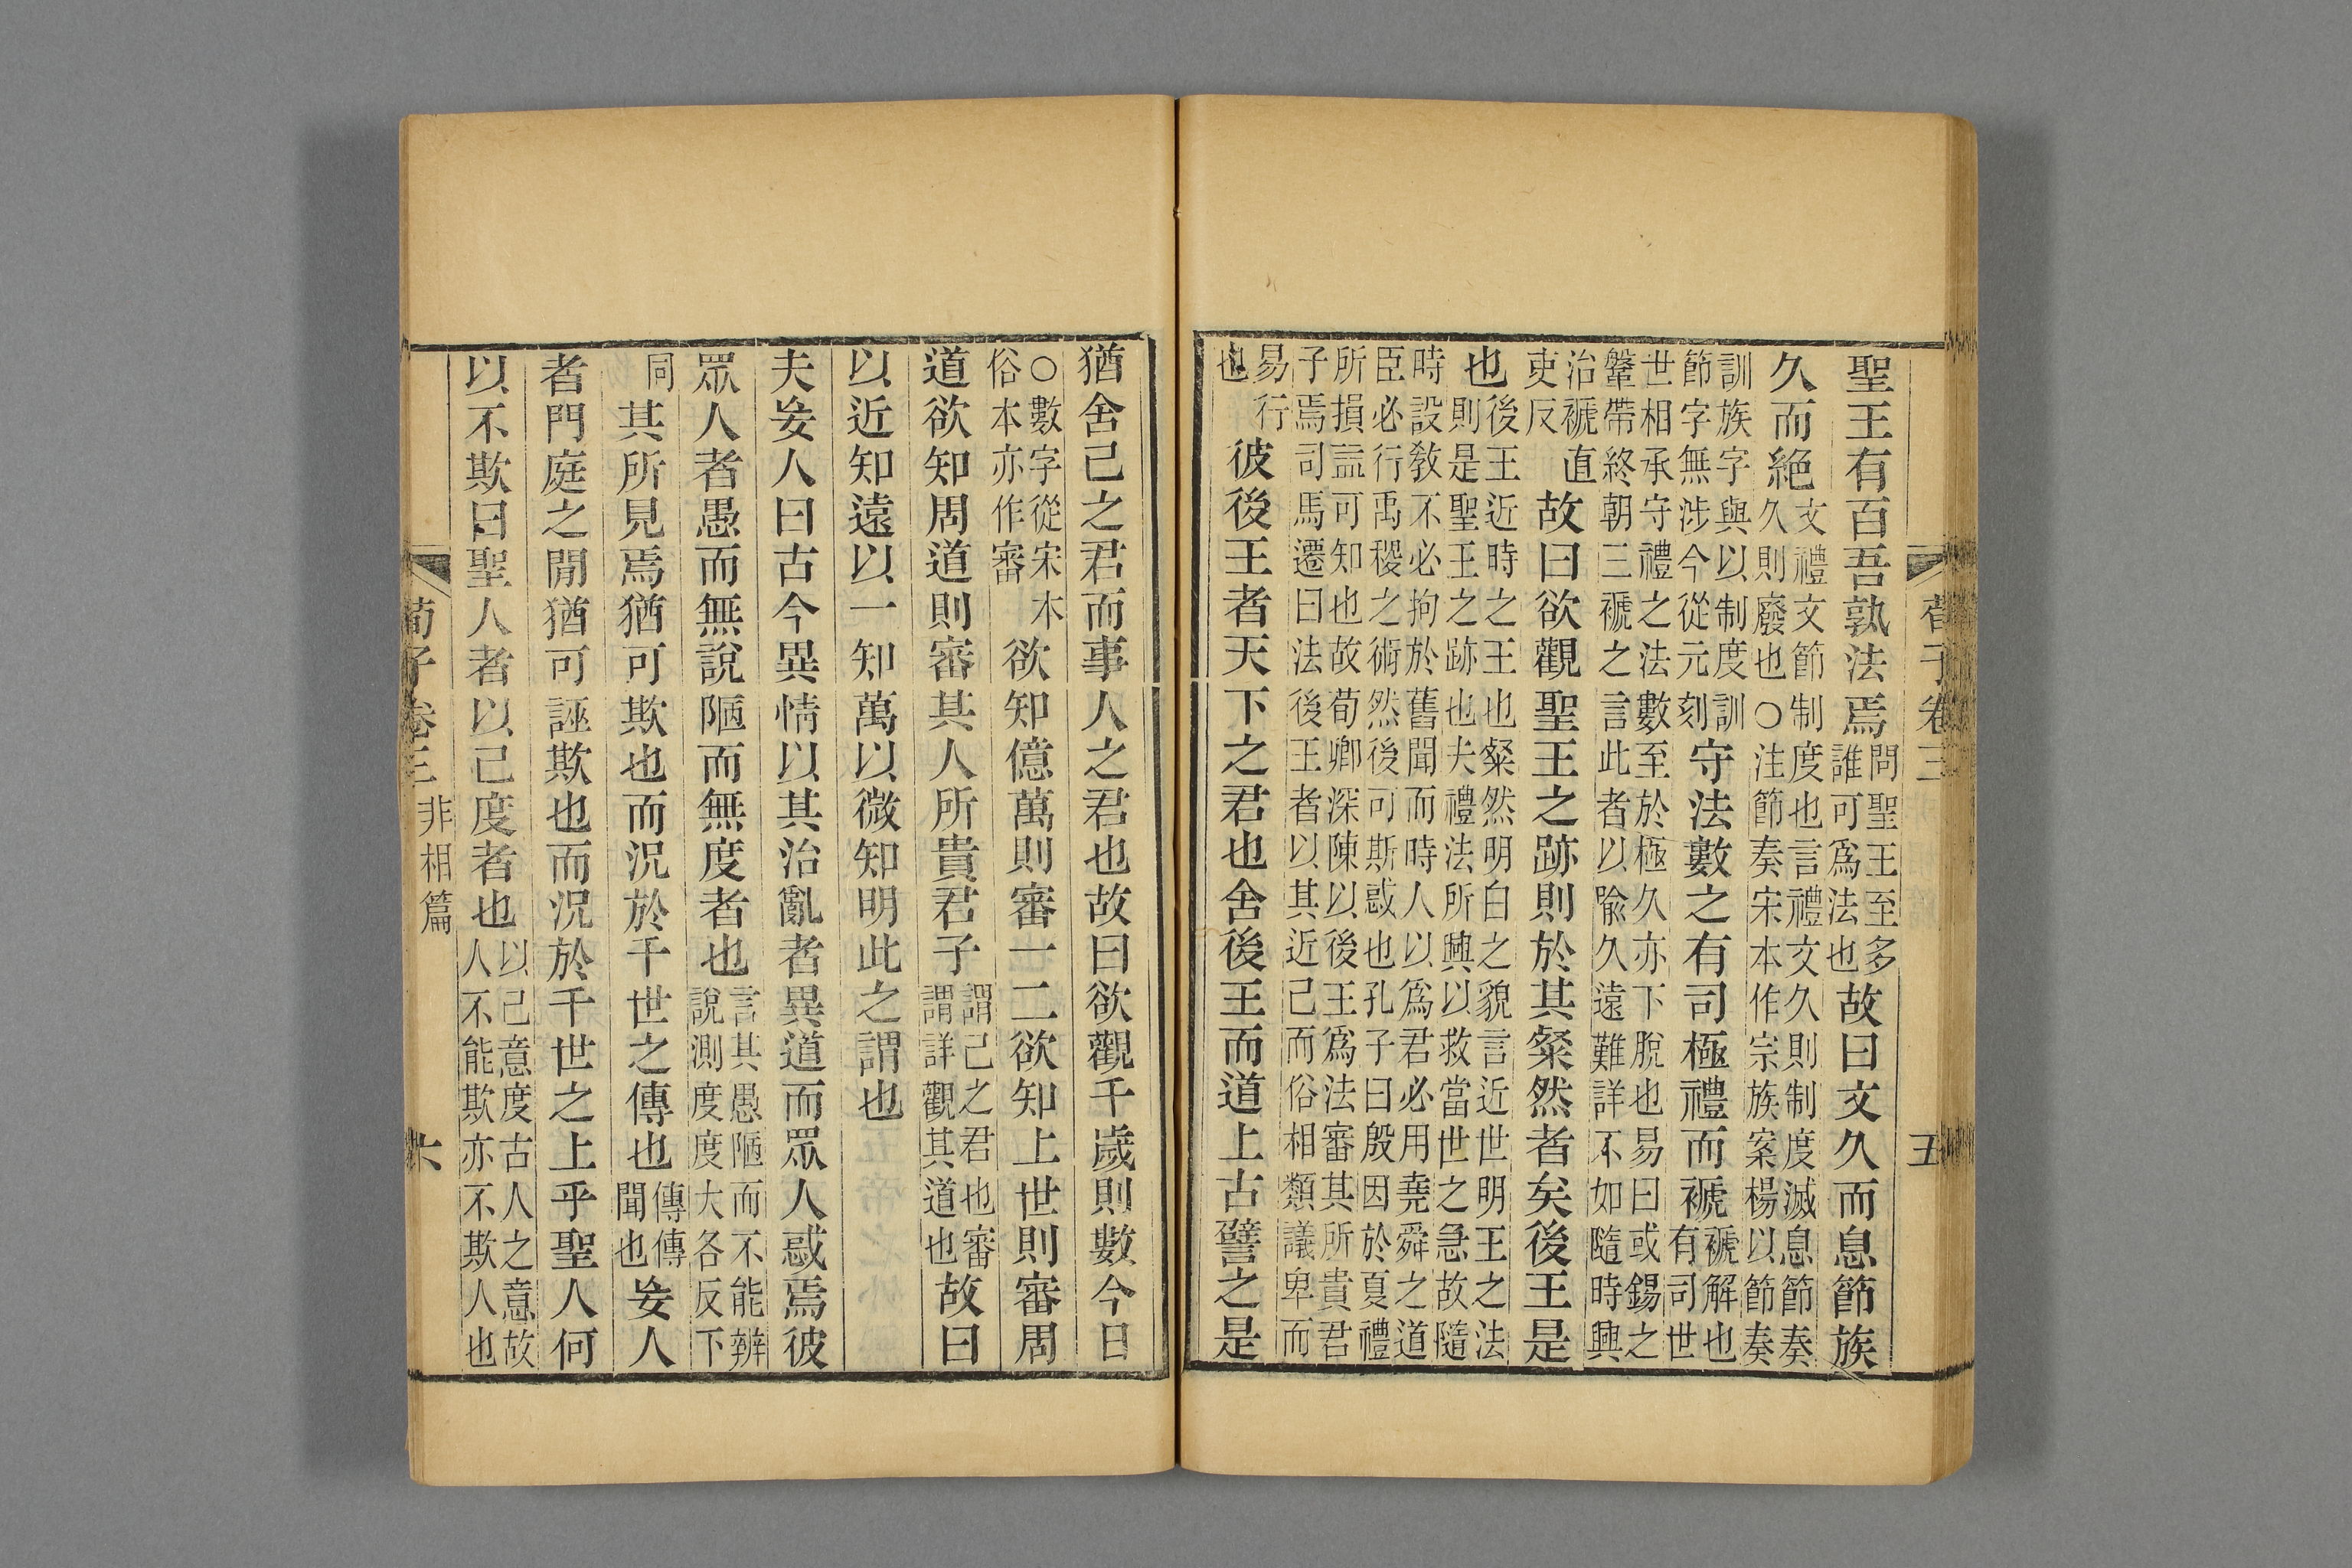 荀子卷三 五
聖王有百吾孰法焉問聖王至多誰可爲法也故曰文久而息節族
久而絶文禮文節制度也言禮文久則制度滅息節奏久則廢也○注節奏宋本作宗族案楊以節奏
訓族字與以制度訓節字無涉今從元刻守法數之有司極禮而褫褫解也有司世
世相承守禮之法數至於極久亦下脫也易曰或錫之鞶帶終朝三褫之言此者以喩久遠難詳不如隨時興
治褫直吏反故曰欲觀聖王之跡則於其粲然者矣後王是
也後王近時之王也粲然明白之貌言近世明王之法則是聖王之跡也夫禮法所興以救當世之急故隨
時設敎不必拘於舊聞而時人以爲君必用堯舜之道臣必行禹稷之術然後可斯惑也孔子曰殷因於夏禮
所損益可知也故荀卿深陳以後王爲法審其所貴君子焉司馬遷曰法後王者以其近己而俗相類議卑而
易行也彼後王者天下之君也舍後王而道上古譬之是
猶舍己之君而事人之君也故曰欲觀千歲則數今日
○數字從宋本俗本亦作審欲知億萬則審一二欲知上世則審周
道欲知周道則審其人所貴君子謂己之君也審謂詳觀其道也故曰
以近知遠以一知萬以微知明此之謂也
夫妄人曰古今異情以其治亂者異道而眾人惑焉彼
眾人者愚而無說陋而無度者也言其愚陋而不能辨說測度度大各反下
同其所見焉猶可欺也而況於千世之傳也傳傳聞也妄人
者門庭之閒猶可誣欺也而況於千世之上乎聖人何
以不欺曰聖人者以己度者也以己意度古人之意故人不能欺亦不欺人也
荀子卷三 非相篇 六